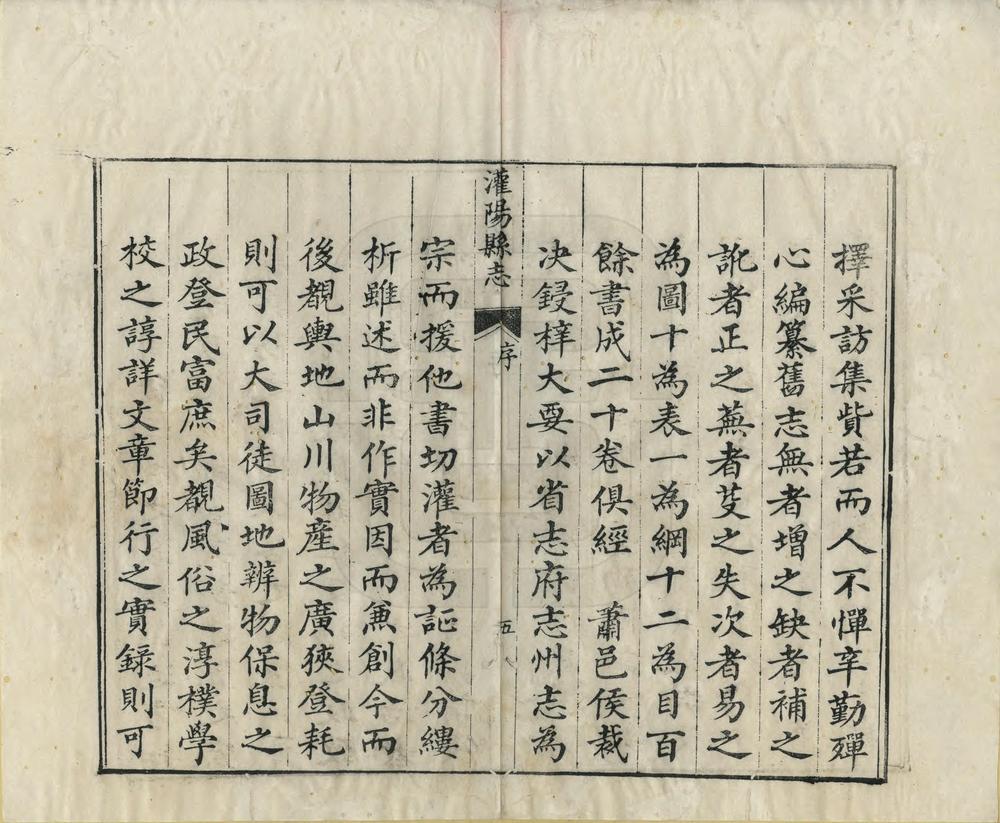 擇采訪集貲若而人不憚辛勤殫
心編纂舊志無者增之缺者補之
訛者正之蕪者芟之失次者易之
為圖十為表一為綱十二為目百
餘書成二十卷俱經　蕭邑侯裁
决鋟梓大要以省志府志州志為
灌陽縣志
序
五
宗而援他書切灌者為証條分縷
析雖述而非作實因而兼創今而
後覩輿地山川物產之廣狹登耗
則可以大司徒圖地辨物保息之
政登民富庶矣覩風俗之淳樸學
校之諄詳文章節行之實錄則可